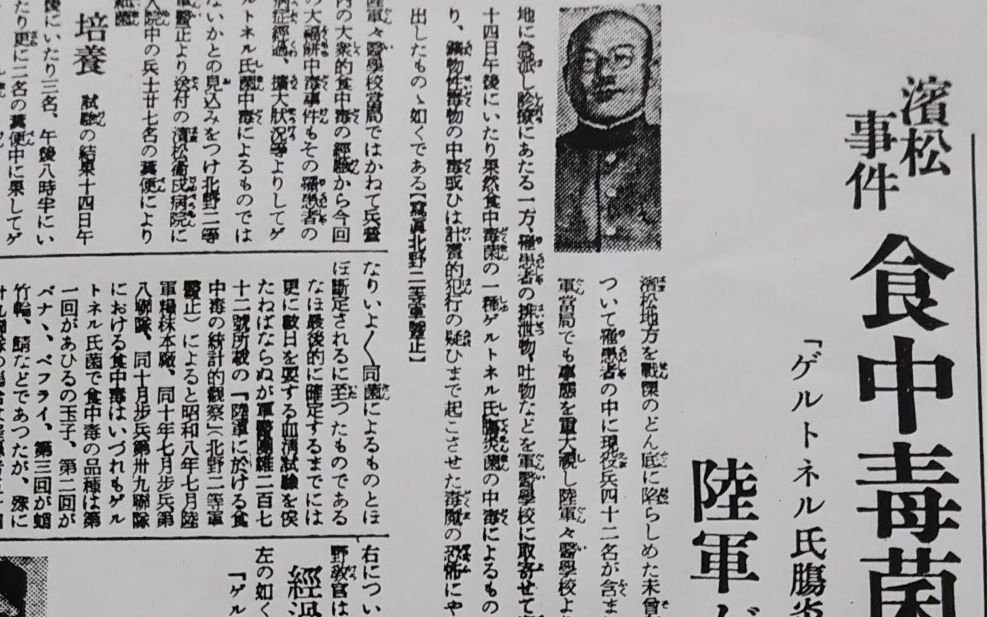 濱松
事件
食中毒菌
「ゲルトネル氏腸炎
陸軍が
濱松地方を戰慄のどん底に陷らしめた未曾
ついて罹患者の中に現役兵四十二名が含ま
軍當局でも事態を重大視し陸軍々醫學校よ
地に急派し診療にあたる一方、罹患者の排泄物、吐物などを軍醫學校に取寄せて
十四日午後にいたり果然食中毒菌の一種ゲルトネル氏腸炎菌の中毒によるもの
り、鑛物性毒物の中毒或ひは計畫的犯行の疑ひまで起こさせた毒魔の恐怖にや
出したものゝ如くである【寫眞北野二等軍醫正】
陸軍々醫學校當局ではかねて兵營
内の大衆的食中毒の經驗から今回
の大福餅中毒事件もその罹患者の
病症經過、擴大狀況等よりしてゲ
ルトネル氏菌中毒によるものでは
ないかとの見込みをつけ北野二等
軍醫正より送付の濱松衞戍病院に
入院中の兵士廿七名の糞便により
菌
培養 試驗の結果十四日午
後にいたり三名、午後八時半にい
たり更に二名の糞便中に果してゲ
なりいよ〱同菌によるものとほ
ぼ斷定されるに至つたものである
なほ最後的に確定するまでには
更に數日を要する血淸試驗を俟
たねばならぬが軍醫團雜二百七
十二號所載の『陸軍に於ける食
中毒の統計的觀察』(北野二等軍
醫正)によると昭和八年七月陸
軍糧秣本廠、同十年七月步兵第
八聯隊、同十月步兵第卅九聯隊
における食中毒はいづれもゲル
トネル氏菌で食中毒の品種は第
一回があひるの玉子、第二回が
バナヽ、ベフライ、第三回が蛸
竹輪、鯖などであつたが、殊に
右につい
野敎官は
左の如く
經過
「ゲル